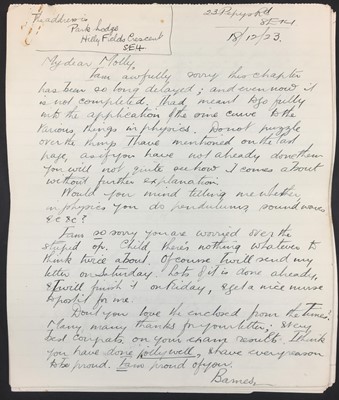 The address is
Park Lodge
Hilly Fields Crescent
SE4
23 Pepys Rd
SE14
18/12/23.
My dear Molly,
I am awfully sorry this chapter
has been so long delayed; and even now it
is not completed. I had meant to go fully
into the application of the one curve to the
various things in physics. Do not puzzle
over the things I have mentioned on the last
page, as if you have not already done them
you will not quite see how it comes about
without further explanation.
Would your mind telling me whether
in physics you do pendulums, sound waves
&c &c?
I am so sorry you are worried over the
stupid op. Child, there's nothing whatever to
think twice about. Of course I will send my
letter on Saturday. Lots of it is done already,
& I will finish it on Friday, & get a nice nurse
to post it for me.
Don't you love the enclosed from the Times?
Many many thanks for your letter; & very
best congrats on your exam results. I think
you have done jolly well, & have every reason
to be proud. I am proud of you.
Barnes